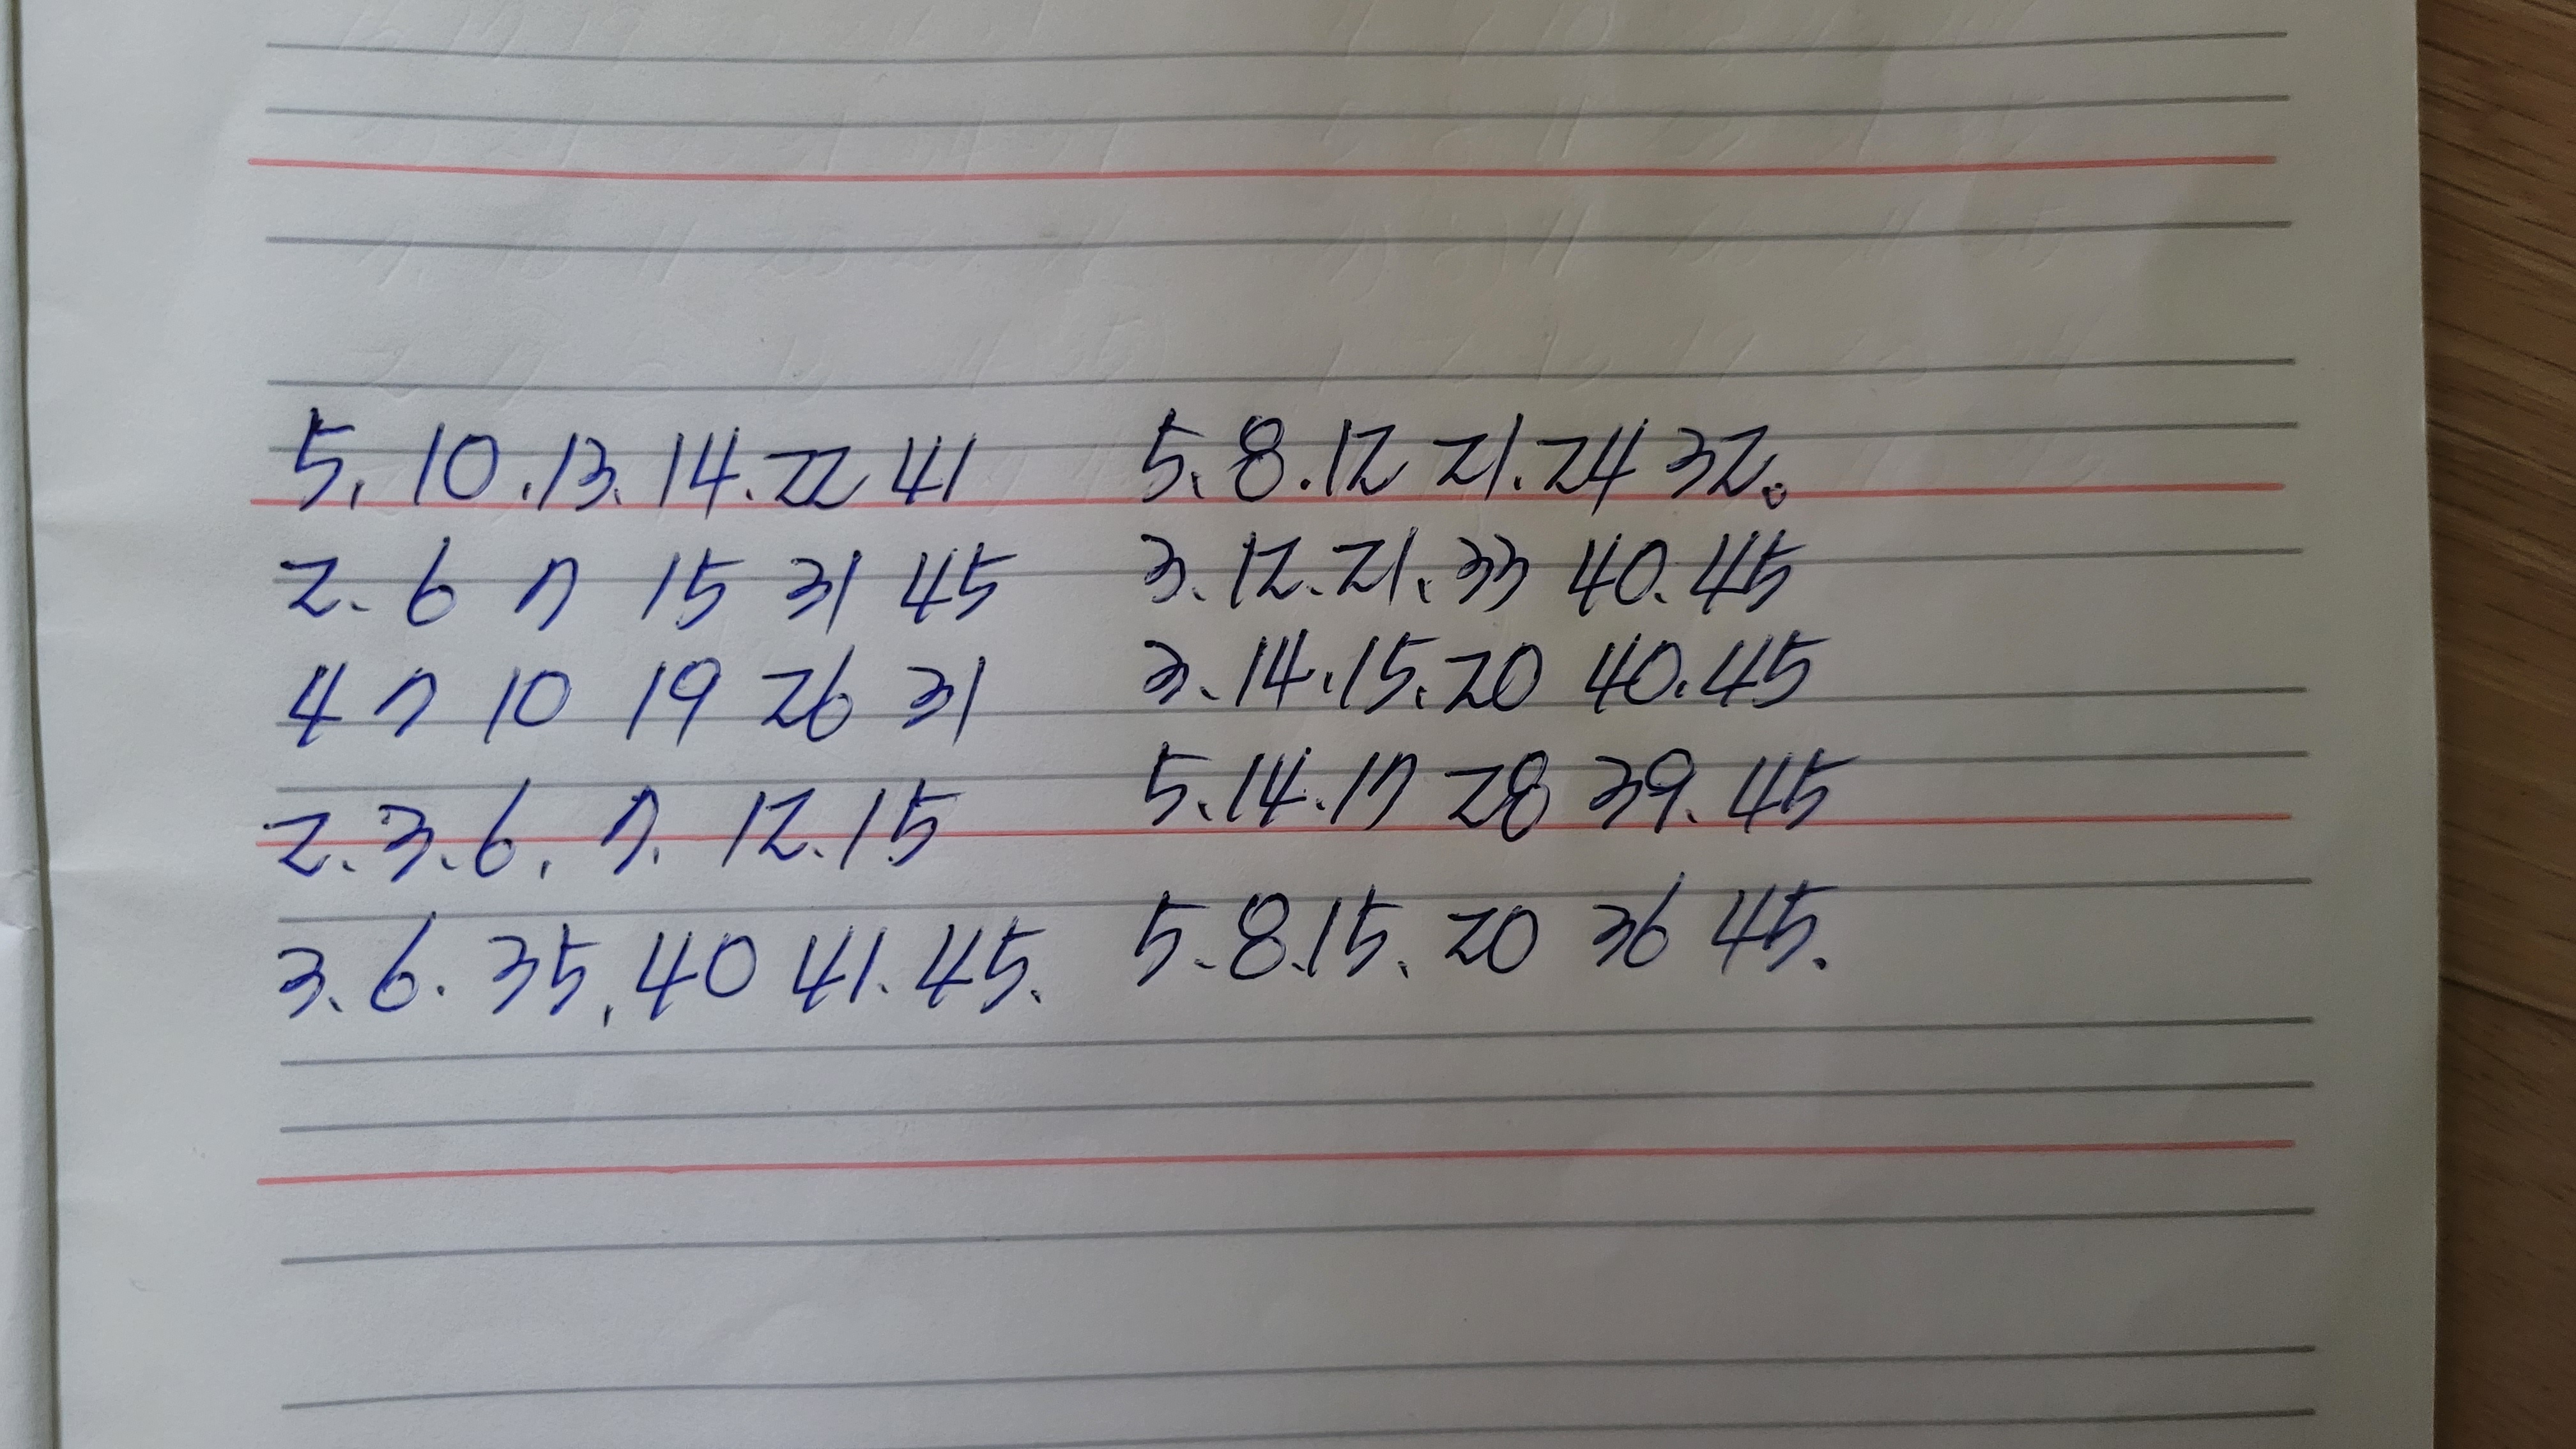 5, 10 . 13. 14. 22 41
2. 6 7 15 31 45
4 7 10 19 26 31
2. 3. 6, 7. 12. 15
3. 6. 35, 40 41. 45.
5. 8. 12 21. 24 32.
3. 12. 21. 33 40. 45
3. 14. 15. 20 40. 45
5. 14. 17 28 39. 45
5. 8. 15. 20 36 45.